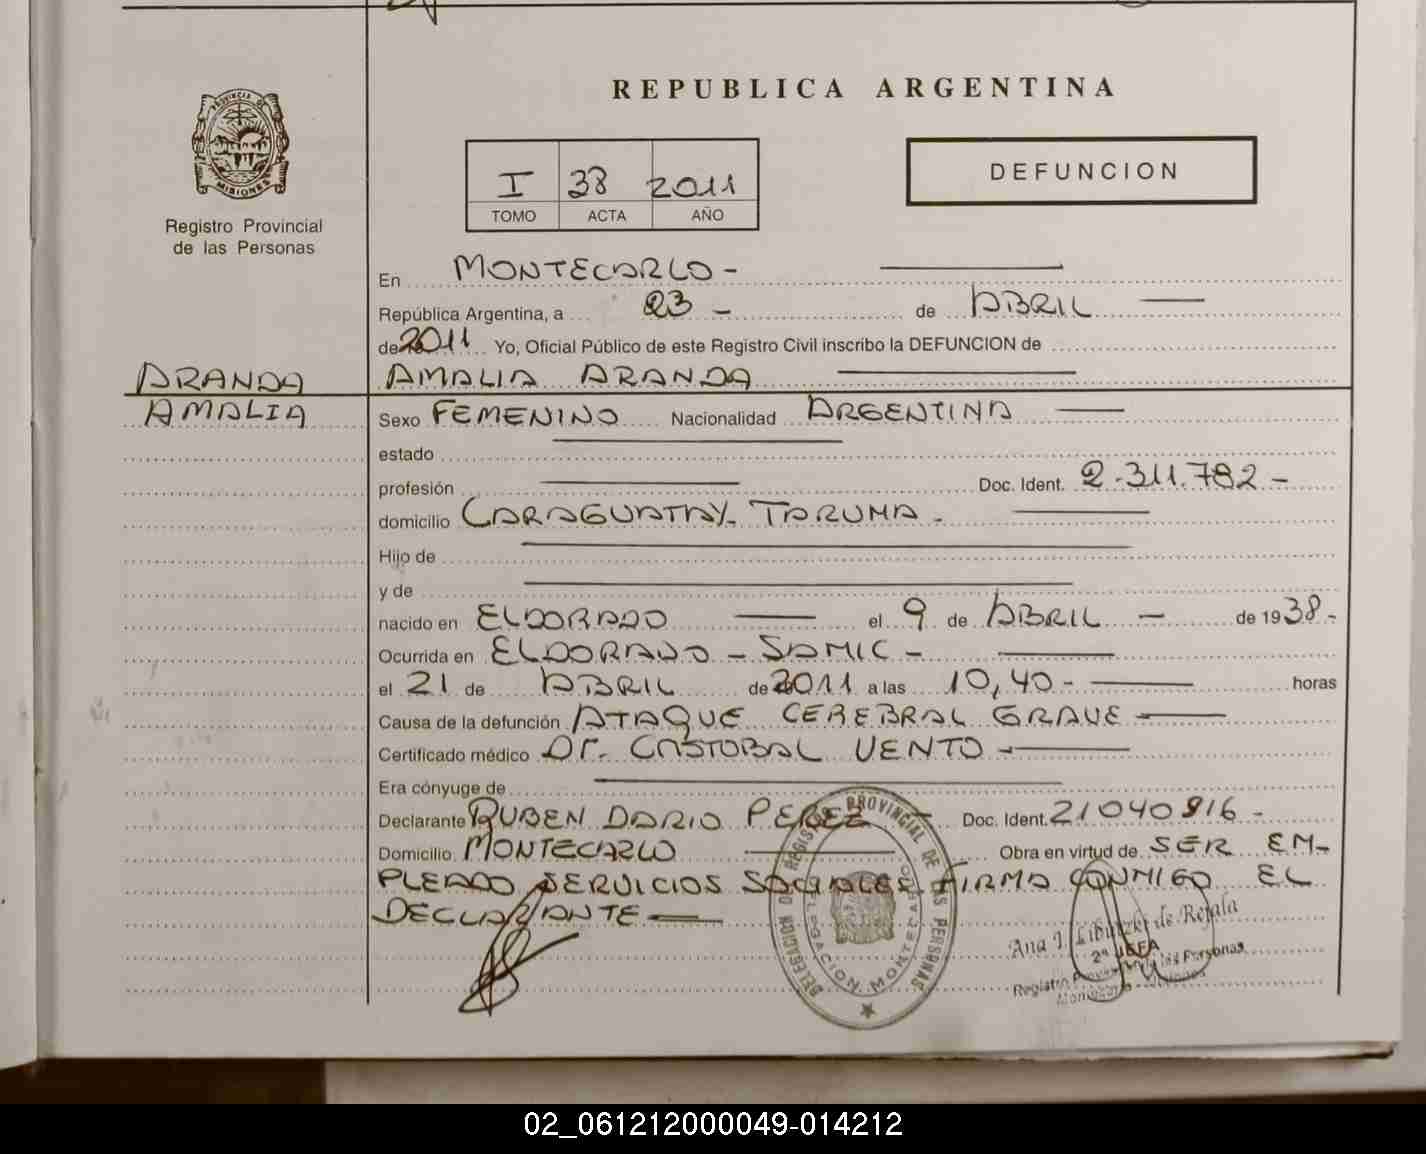 REPUBLICA ARGENTINA
PROVINCIA DE
MISIONES
Registro Provincial
de las Personas
I 38 2011
TOMO ACTA AÑO
DEFUNCION
En MONTECARLO -
República Argentina, a 23 - de ABRIL
de 2011 Yo, Oficial Público de este Registro Civil inscribo la DEFUNCION de
ARANDA AMALIA ARANDA
AMALIA
Sexo FEMENINO Nacionalidad ARGENTINA
estado
profesión Doc. Ident. 2.311.782 -
domicilio CARAGUATAY. TARUMA -
Hijo de
y de
nacido en ELDORADO el 9 de ABRIL - de 1938 -
Ocurrida en ELDORADO - SAMIC -
el 21 de ABRIL de 2011 a las 10,40 - horas
Causa de la defunción ATAQUE CEREBRAL GRAVE
Certificado médico Dr. CRISTOBAL VENTO -
Era cónyuge de
Declarante RUBEN DARIO PEREZ - Doc. Ident. 21040816 -
Domicilio MONTECARLO Obra en virtud de SER EM-
PLEADO SERVICIOS SOCIALES FIRMA CONMIGO EL
DECLARANTE
DELEGACION DE REGISTRO PROVINCIAL DE LAS PERSONAS
DELEGACION MONTECARLO
Ana de Rejala
2ª JEFA
Registro Provincial de las Personas
Montecarlo - Misiones
02_061212000049-014212